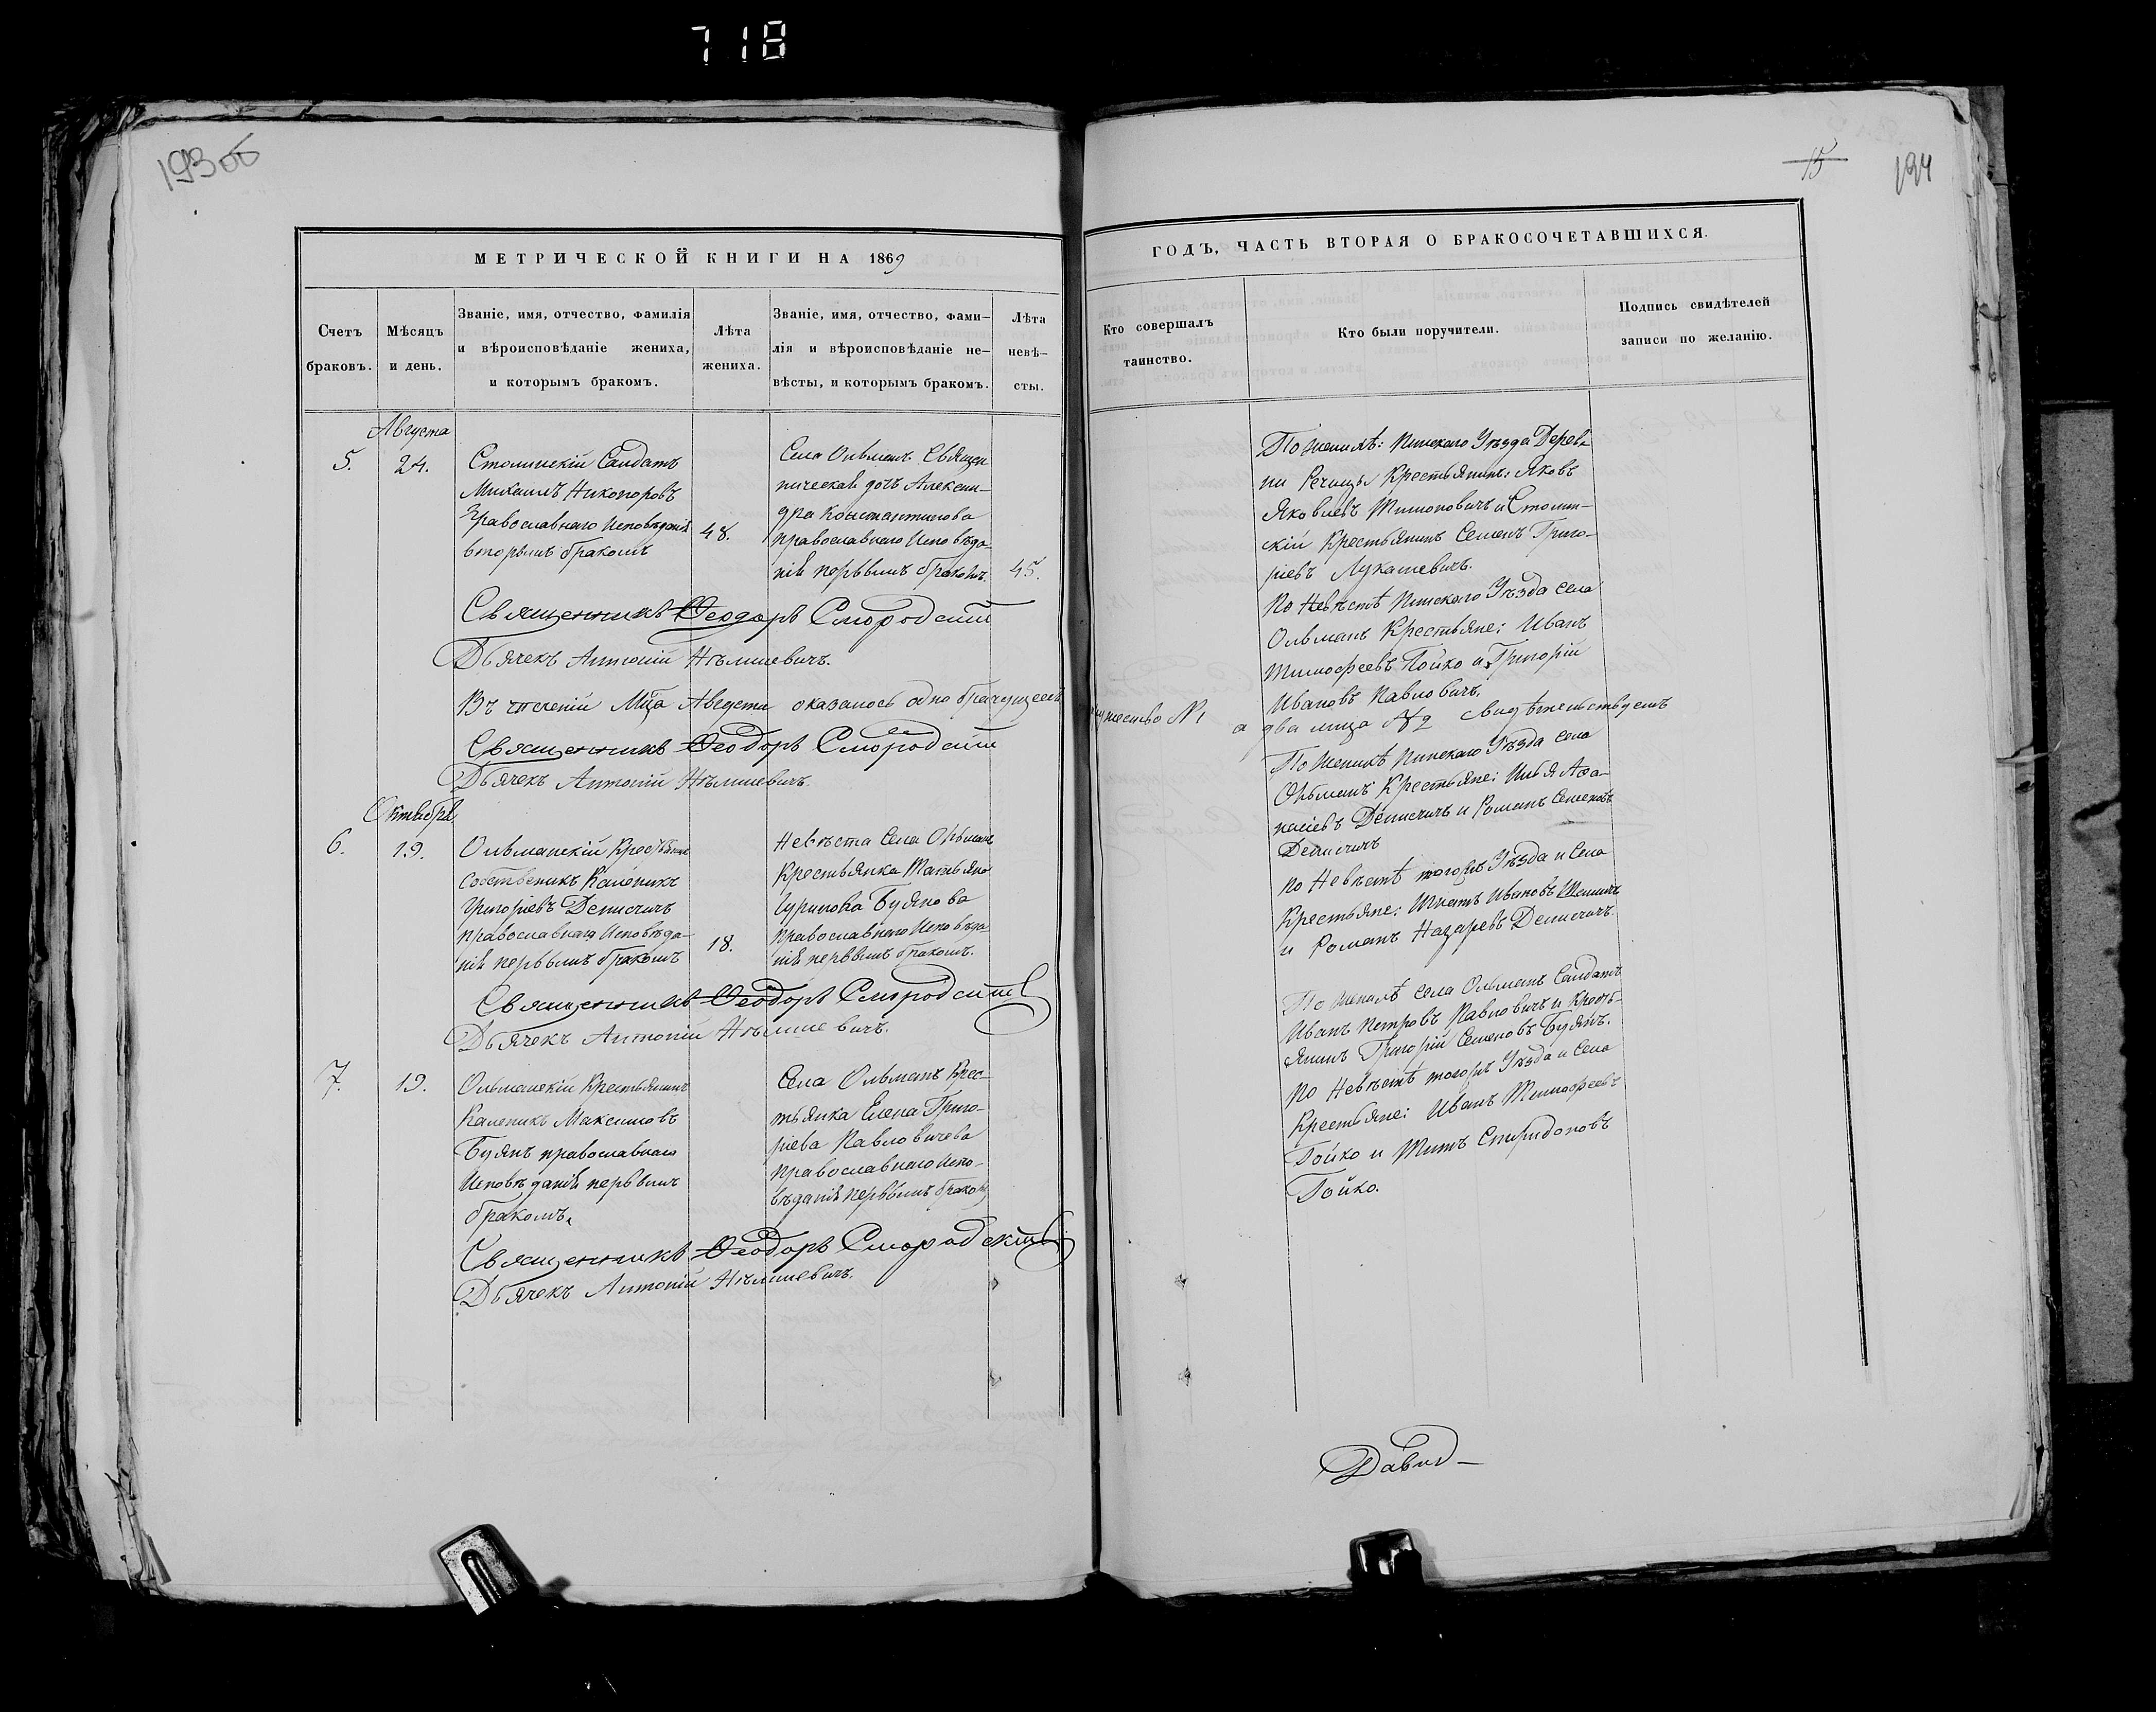 718
193об
МЕТРИЧЕСКОЙ КНИГИ НА 1869
Счетъ браковъ.
Мѣсяцъ и день.
Званіе, имя, отчество, фамилія
и вѣроисповѣданіе жениха,
и которымъ бракомъ.
Лѣта жениха.
Званіе, имя, отчество, фами–
лія и вѣроисповѣданіе не–
вѣсты, и которымъ бракомъ.
Лѣта невѣ–
сты.
Августа
5.
24.
Столинскій Салдатъ
Михаилъ Никоноровъ
Православнаго Исповѣданія
вторымъ бракомъ
48.
Села Ольманъ Священ
ническая дочь Алексан–
дра Константинова
православнаго Исповѣда–
нія первымъ бракомъ.
45.
Священникъ Ѳеодоръ Смородскій
Дьячекъ Антоній Нѣмшевичъ.
Въ теченіи Мца Августа оказалось одно брачущееся
Священникъ Ѳеодоръ Смородскій
Дьячекъ Антоній Нѣмшевичъ.
Октября
6.
19.
Ольманскій Крестьянинъ
Собственикъ Каленикъ
Григоріевъ Денисчичъ
православнаго Исповѣда–
нія первымъ бракомъ
18.
Невѣста Села Ольманъ
Крестьянка Татьяна
Гуринова Буянова
православнаго Исповѣда
нія первымъ бракомъ.
Священникъ Ѳеодоръ Смородскій
Дьячекъ Антоній Нѣмшевичъ.
7.
19.
Ольманскій Крестьянинъ
Каленикъ Максимовъ
Буянъ православнаго
Исповѣданія первымъ
бракомъ.
Села Ольманъ Крес–
тьянка Елена Григо–
ріева Павловичева
православнаго Испо–
вѣданія первымъ бракомъ
Священникъ Ѳеодоръ Смородскій
Дьячекъ Антоній Нѣмшевичъ.
15
194
ГОДЪ, ЧАСТЬ ВТОРАЯ О БРАКОСОЧЕТАВШИХСЯ.
Кто совершалъ
таинство.
Кто были поручители.
Подпись свидѣтелей
записи по желанію.
По женихѣ: Пинскаго Уѣзда Дерев–
ни Речицы Крестьянинъ: Яковъ
Яковлевъ Тимоновичъ и Столин–
скій Крестьянинъ Семенъ Григо–
ріевъ Лукашевичъ.
По Невѣстѣ Пинскаго Уѣзда села
Ольманъ Крестьяне: Иванъ
Тимофеевъ Гойко и Григорій
Ивановъ Павловичъ.
№ 1 а два лица № 2 свидѣтельствуемъ
По Женихѣ Пинскаго Уѣзда села
Ольманъ Крестьяне: Илья Афа–
насіевъ Денисчичъ и Романъ Семеновъ
Денисчичъ
по Невѣстѣ тогожъ Уѣзда и Села
Крестьяне: Игнатъ Ивановъ
и Романъ Назаревъ Денисчичъ.
По Женихѣ села Ольманъ Салдатъ
Иванъ Петровъ Павловичъ и Кресть–
янинъ Григорій Семеновъ Буянъ.
По Невѣстѣ тогожъ Уѣзда и Села
Крестьяне: Иванъ Тимофеевъ
Гойко и Титъ Спиридоновъ
Гойко.
Давид–